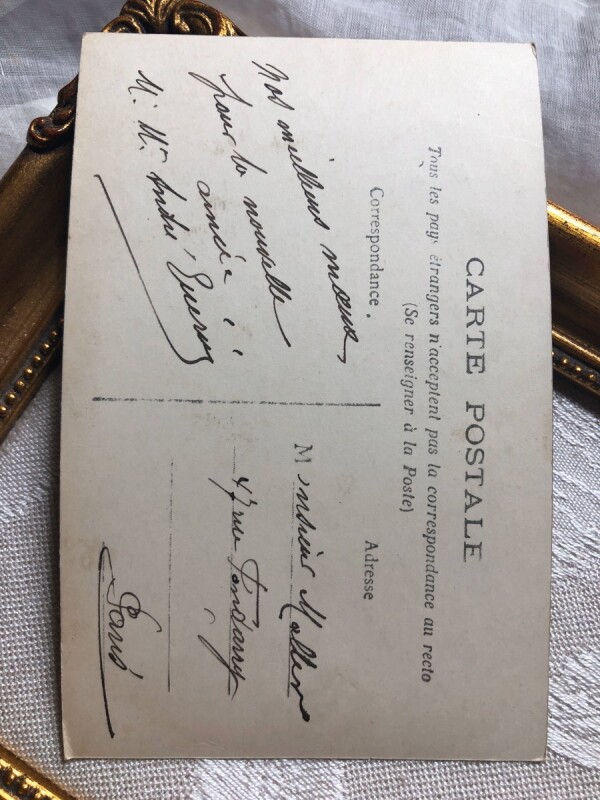 CARTE POSTALE
Tous les pays étrangers n'acceptent pas la correspondance au recto
(Se renseigner à la Poste)
Correspondance.
Nos meilleurs vœux
pour la nouvelle
année
M. Mme André
Adresse
Monsieur
47 rue Fondary
Paris